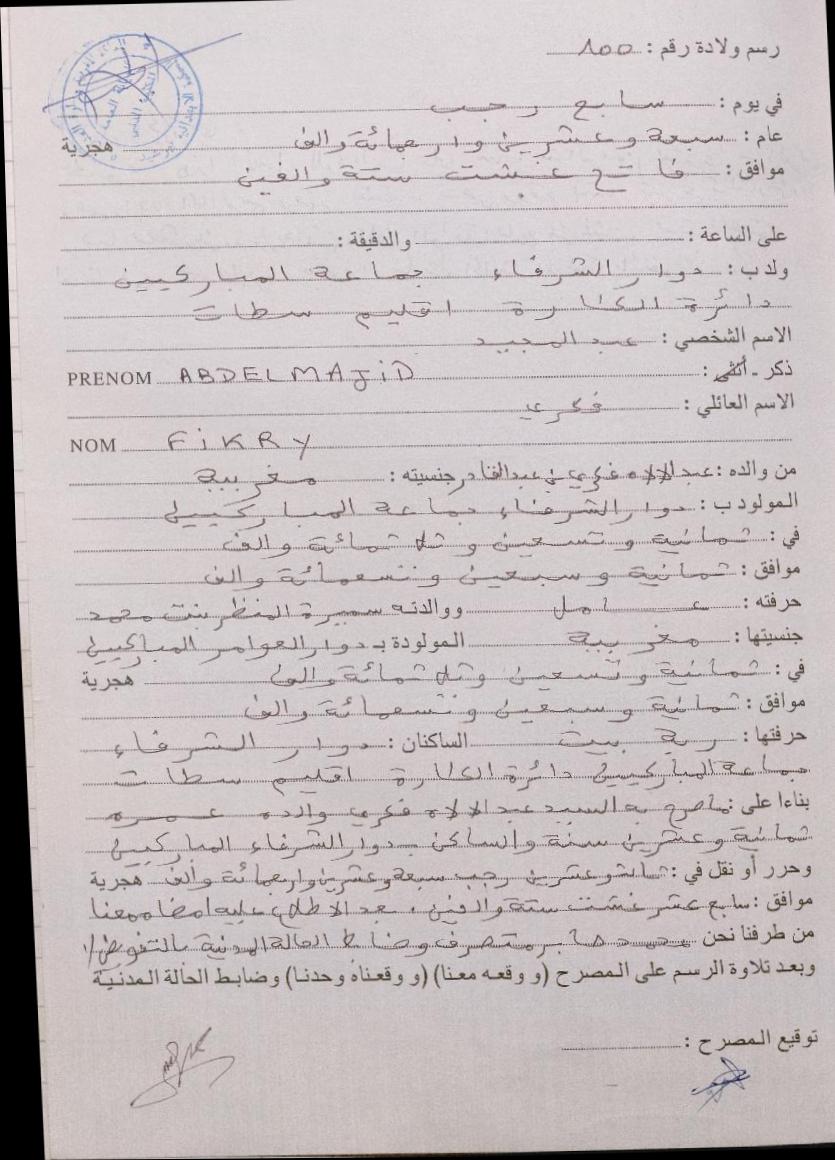 رسم ولادة رقم : 100
في يوم : سابع رجب
عام : سبعة وعشرين واربعمائة والف هجرية
موافق : فاتح غشت ستة والفين
على الساعة : والدقيقة :
ولد ب : دوار الشرفاء جماعة المباركيين
دائرة الكارة اقليم سطات
الاسم الشخصي : عبد المجيد
ذكر - أنثى : PRENOM ABDELMAJiD
الاسم العائلي : فكري
NOM FiKRY
من والده : عبد الالاه فكري بن عبد القادر جنسيته : مغربية
المولود ب : دوار الشرفاء جماعة المباركيين
في : ثمانية وتسعين وثلاثمائة والف
موافق : ثمانية وسبعين وتسعمائة والف
حرفته : عامل ووالدته سميرة المنظر بنت محمد
جنسيتها : مغربية المولودة ب دوار العوامر المباركيين
في : ثمانية وتسعين وثلاثمائة والف هجرية
موافق : ثمانية وسبعين وتسعمائة والف
حرفتها : ربة بيت الساكنان : دوار الشرفاء
جماعة المباركيين دائرة الكارة اقليم سطات
بناءا على : ماصرح به السيد عبد الالاه فكري والده عمره
ثمانية وعشرين سنة والساكن بدوار الشرفاء المباركيين
وحرر أو نقل في : وعشرين رجب سبعة وعشرين واربعمائة والف هجرية
موافق : سابع عشر غشت ستة والفين . بعد الاطلاع عليه امضاه معنا
من طرفنا نحن متصرف وضابط الحالة المدنية بالتفويض
وبعد تلاوة الرسم على المصرح (و وقعه معنا) (و وقعناه وحدنا) وضابط الحالة المدنية
توقيع المصرح :